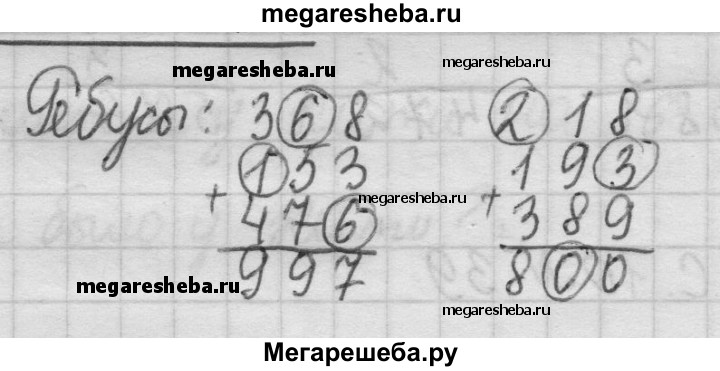 megaresheba.ru
megaresheba.ru
megaresheba.ru
Ребусы: 368 218
153 193
+ 476 + 389
megaresheba.ru
997 800
megaresheba.ru
megaresheba.ru
Мегарешеба.ру